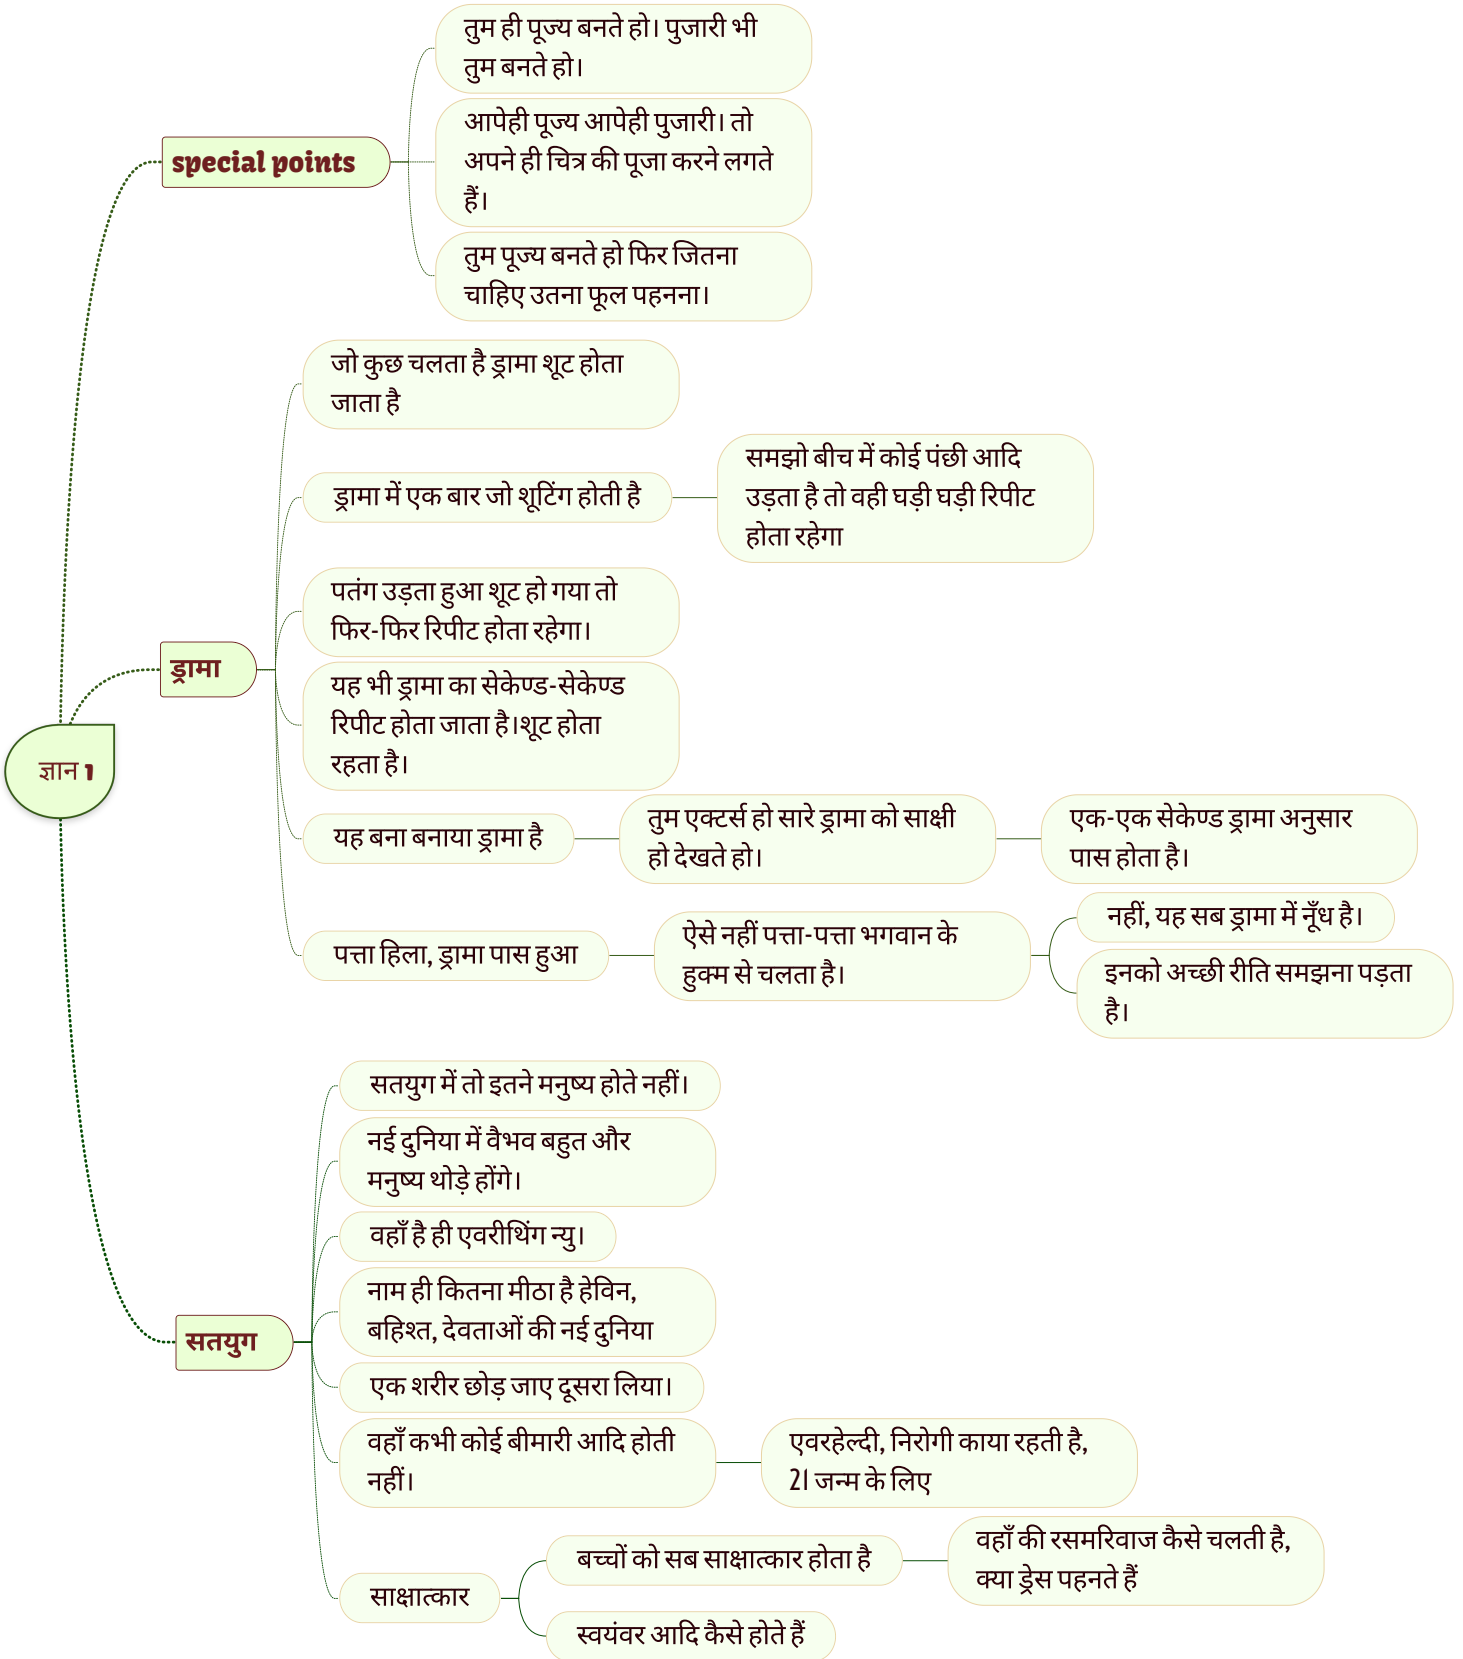 तुम ही पूज्य बनते हो। पुजारी भी
तुम बनते हो।
आपेही पूज्य आपेही पुजारी। तो
अपने ही चित्र की पूजा करने लगते
हैं।
special points
तुम पूज्य बनते हो फिर जितना
चाहिए उतना फूल पहनना।
जो कुछ चलता है ड्रामा शूट होता
जाता है
ड्रामा में एक बार जो शूटिंग होती है
समझो बीच में कोई पंछी आदि
उड़ता है तो वही घड़ी घड़ी रिपीट
होता रहेगा
पतंग उड़ता हुआ शूट हो गया तो
फिर-फिर रिपीट होता रहेगा।
ड्रामा
यह भी ड्रामा का सेकेण्ड-सेकेण्ड
रिपीट होता जाता है।शूट होता
रहता है।
ज्ञान 1
यह बना बनाया ड्रामा है
तुम एक्टर्स हो सारे ड्रामा को साक्षी
हो देखते हो।
एक-एक सेकेण्ड ड्रामा अनुसार
पास होता है।
पत्ता हिला, ड्रामा पास हुआ
ऐसे नहीं पत्ता-पत्ता भगवान के
हुक्म से चलता है।
नहीं, यह सब ड्रामा में नूँध है।
इनको अच्छी रीति समझना पड़ता
है।
सतयुग में तो इतने मनुष्य होते नहीं।
नई दुनिया में वैभव बहुत और
मनुष्य थोड़े होंगे।
वहाँ है ही एवरीथिंग न्यु।
नाम ही कितना मीठा है हेविन,
बहिश्त, देवताओं की नई दुनिया
सतयुग
एक शरीर छोड़ जाए दूसरा लिया।
वहाँ कभी कोई बीमारी आदि होती
नहीं।
एवरहेल्दी, निरोगी काया रहती है,
21 जन्म के लिए
साक्षात्कार
बच्चों को सब साक्षात्कार होता है
वहाँ की रसमरिवाज कैसे चलती है,
क्या ड्रेस पहनते हैं
स्वयंवर आदि कैसे होते हैं